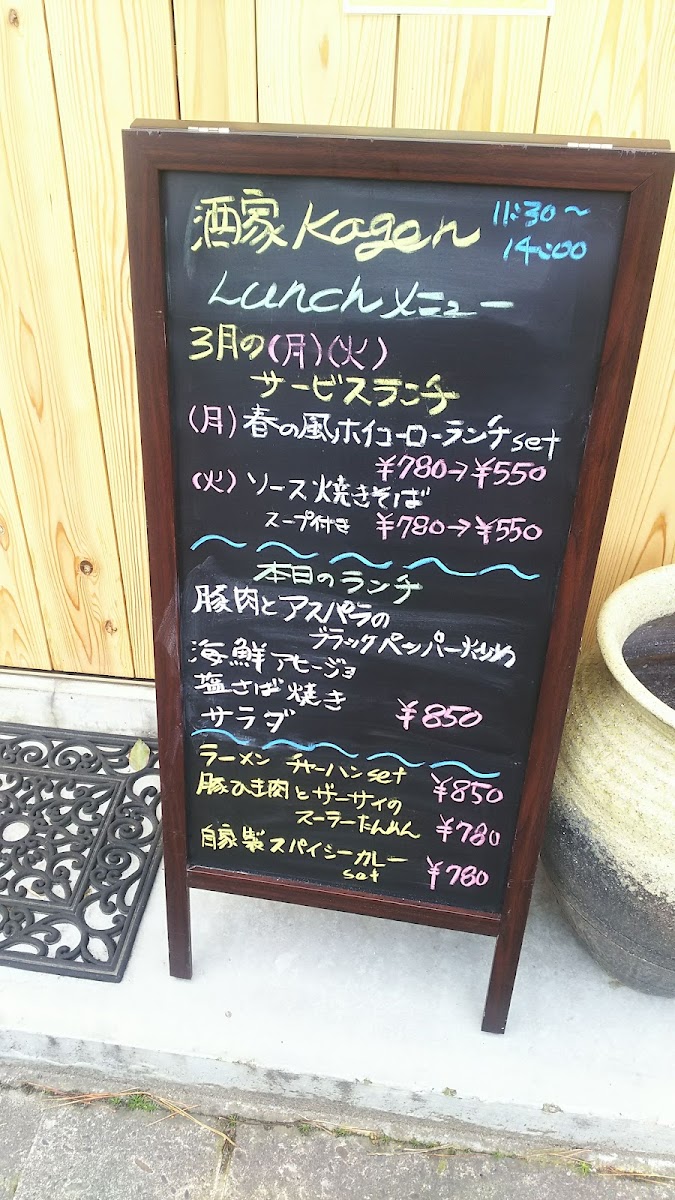 酒家 Kagen 11:30〜
14:00
Lunchメニュー
3月の(月)(火)
サービスランチ
(月)春の風ホイコーローランチset
¥780→¥550
(火)ソース焼きそば
スープ付き ¥780→¥550
本日のランチ
豚肉とアスパラの
ブラックペッパー炒め
海鮮アヒージョ
塩さば焼き
サラダ ¥850
ラーメン チャーハンset ¥850
豚ひき肉とザーサイの
スーラーたんめん ¥780
自家製スパイシーカレー
set ¥780